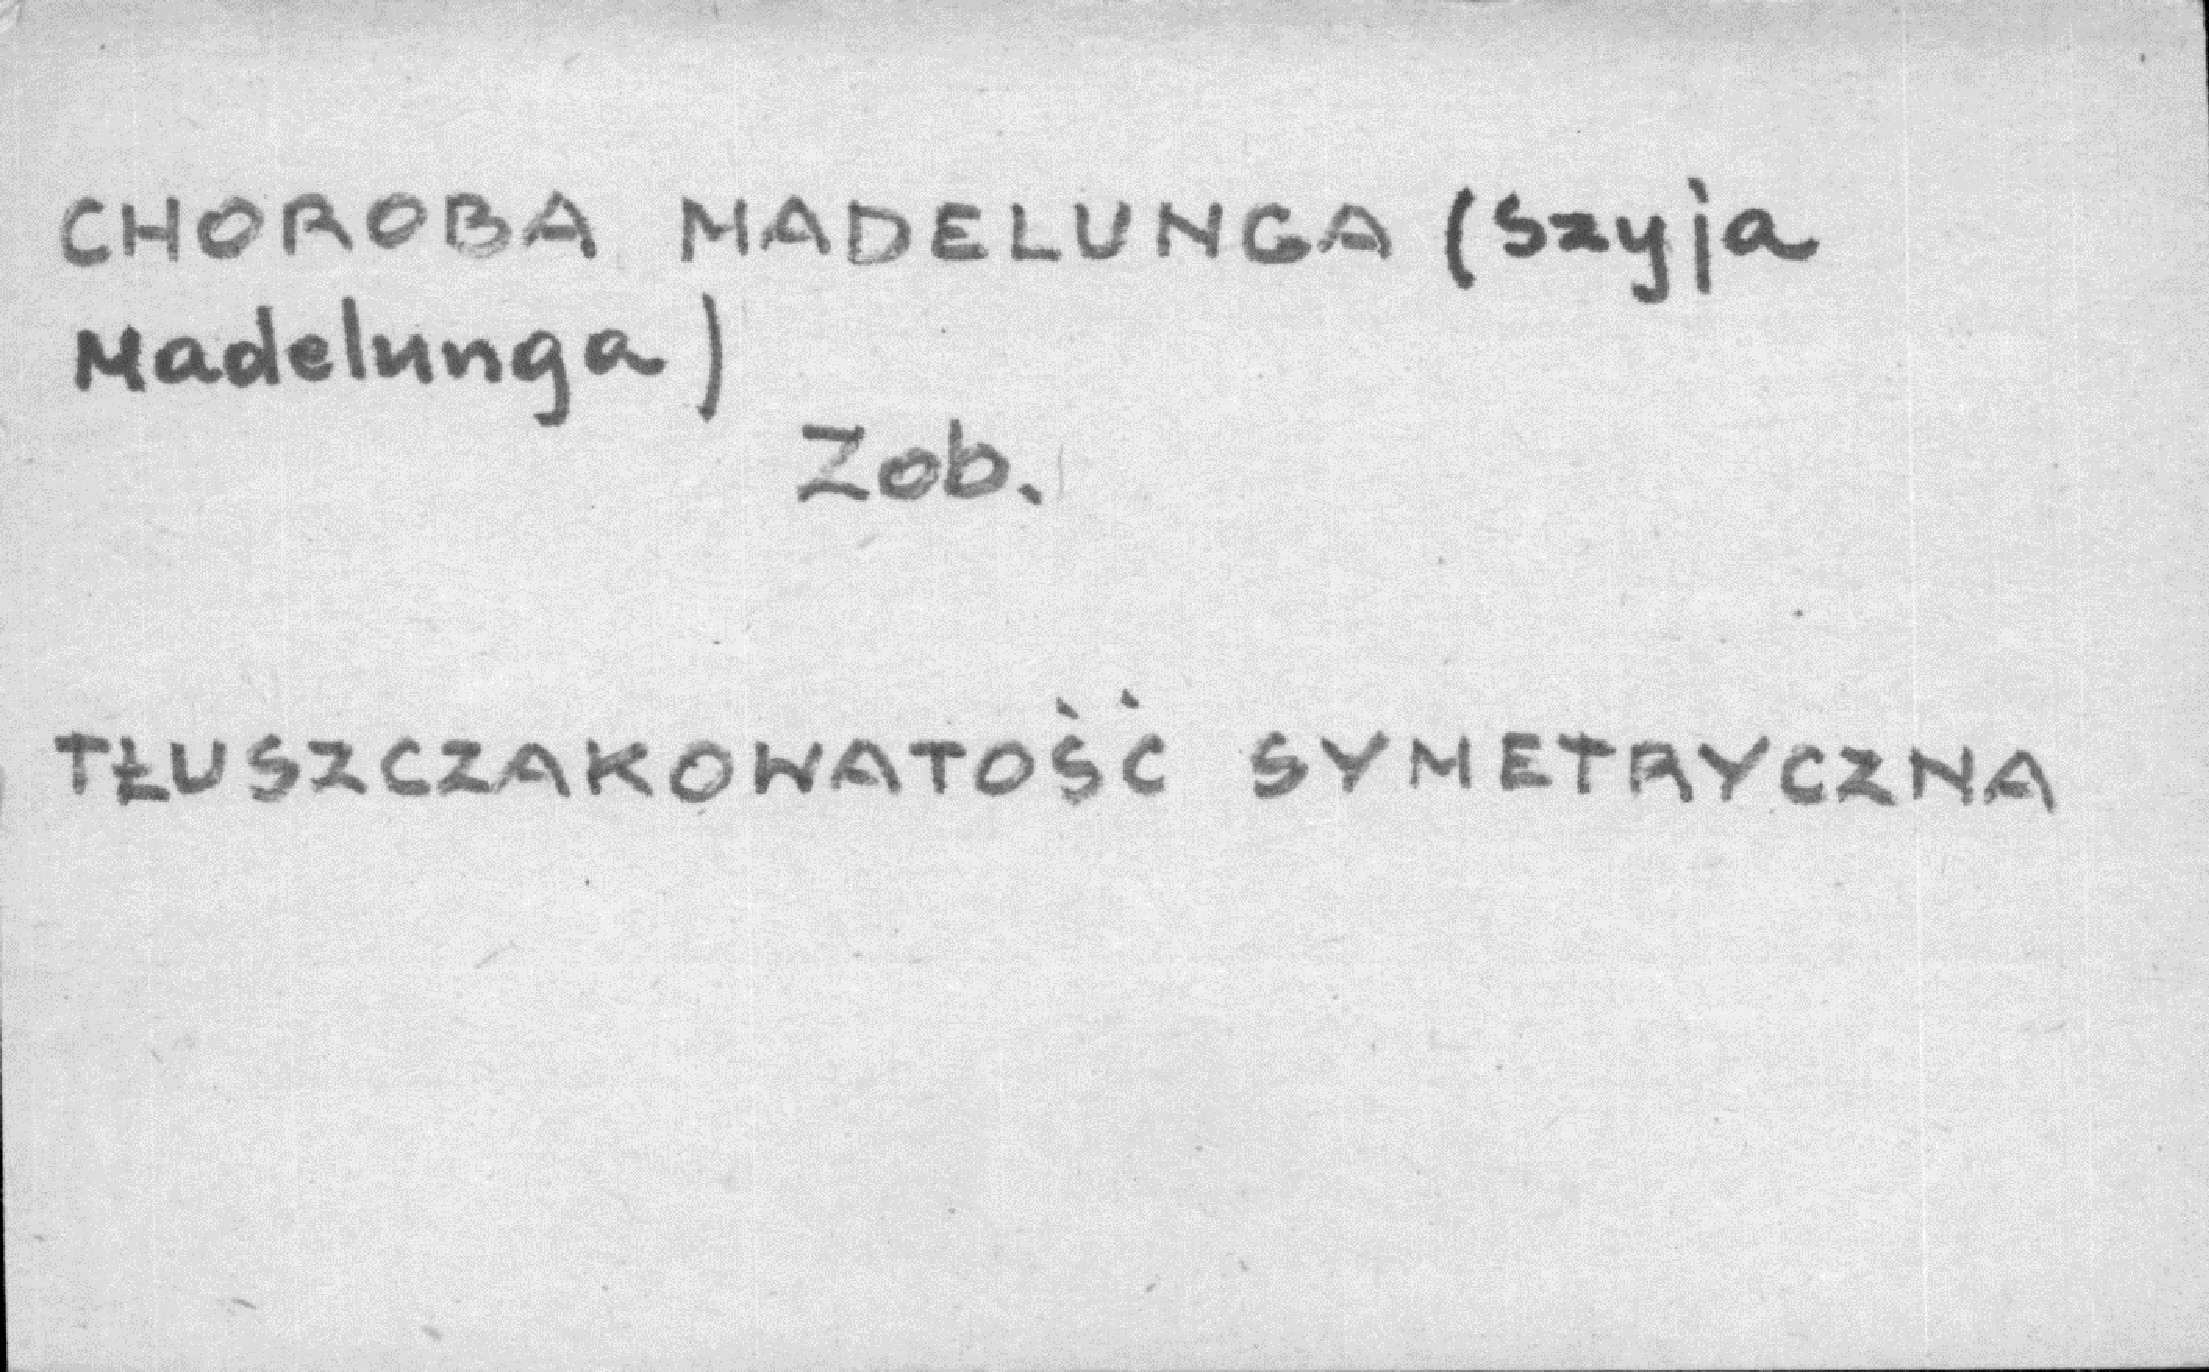 CHOROBA MADELUNGA (szyja
Madelunga)
Zob.
TŁUSZCZAKOWATOŚĆ SYMETRYCZNA